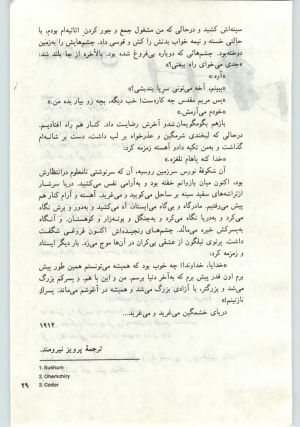 سینه‌اش کشید و درحالی که من مشغول جمع و جور کردن اثاثیه‌ام بودم، با
حالتی خسته و نیمه خواب بدنش را کش و قوسی داد. چشم‌هایش را به‌زمین
دوخته بود. چشم‌هائی که دوباره بی‌فروغ شده بود. بالأخره از جا بلند شد:
«جدی می‌خوای راه بیفتی؟»
«آره.»
«ببینم، آخه می‌تونی سرپا بندبشی؟»
«بس مریم مقدس چه کاره‌ست؟ خب دیگه، بچه رو بیار بده من.»
«خودم می‌آرمش.»
بازهم بگومگویمان شد و آخرش رضایت داد. کنار هم راه افتادیم.
درحالی که لبخندی شرمگین و عذرخواه بر لب داشت، دست بر شانه‌ام
گذاشت و به‌من تکیه دادو آهسته زمزمه کرد:
«خدا کنه پاهام نلغزه.»
آن شکوفهٔ نورس سرزمین روسیه، آن که سرنوشتی نامعلوم درانتظارش
بود، اکنون میان بازوانم خفته بود و به‌آرامی نفس می‌کشید. دریا سرشار
ازتراشه‌های سفید سینه بر ساحل می‌کوبید و می‌غرید. آهسته و آرام کنار هم
پیش می‌رفتیم. مادرگاه و بی‌گاه می‌ایستاد، آه می‌کشید و به‌دور و برش نگاه
می‌کرد و به‌دریا نگاه می‌کرد و به‌جنگل و بوته‌زار و کوهستان. و آنگاه
به‌پسرکش خیره می‌ماند. چشم‌های رنجیده‌اش اکنون فروغی شگفت
داشت. پرتوی نیلگون از عشقی بی‌کران در آن‌ها موج می‌زد. بار دیگر ایستاد
و زمزمه کرد:
«خدایا، خداوندا! چه خوب بود که همیشه می‌تونستم همین طور پیش
برم اون قدر پیش برم که به‌آخر دنیا برسم. من و این‌با هم. و پسرکم بزرگ
می‌شد و بزرگتر، با آزادی بزرگ می‌شد و همیشه در آغوشم می‌ماند. پسرك
نازنینم!»
دریای خشمگین می‌غرید و می‌غرید...
۱۹۱۲
ترجمهٔ پرویز نیرومند.
1. Sukhum
2. Ohemchiry
3. Coder
۲۹